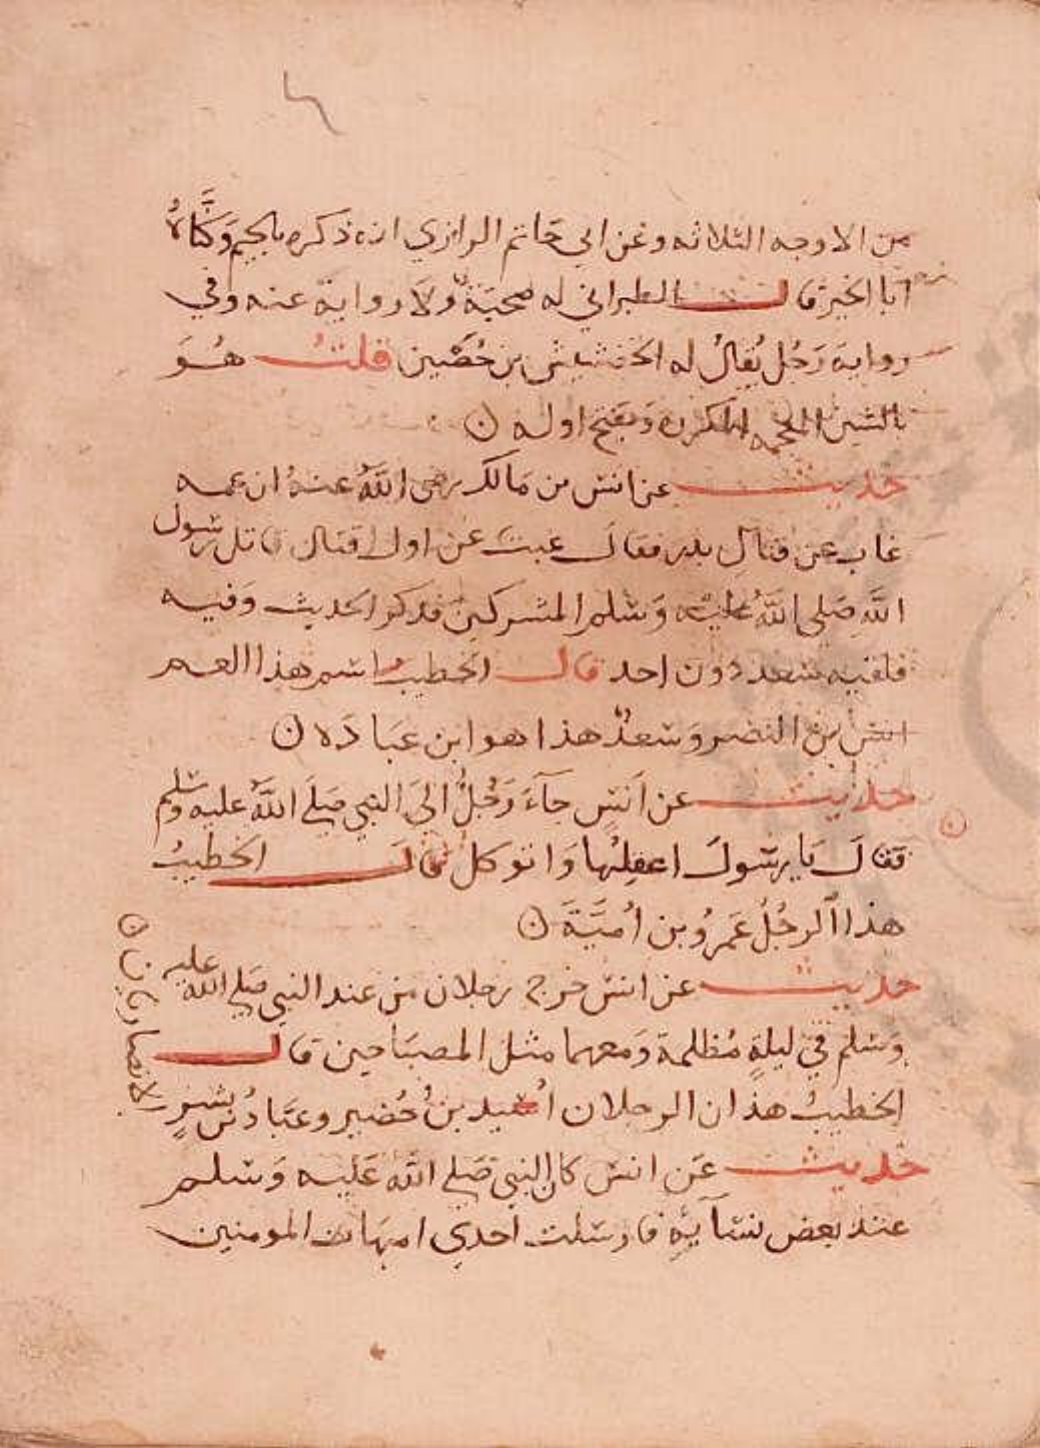 من الاوجه الثلاثه وعن ابي حاتم الرازي انه ذكره بالجيم وَكَنَّاهُ
ابا الخير قال الطبراني له صحبَةٌ ولا رواية عنه وفي
رواية رَجُل يُقالُ له الخشيش بن حُصَين قلتُ هُوَ
بالشين المعجمه المكرره وَبفتح اوله ن
حديث عن انس بن مَالك رضى اللَّهُ عنهُ ان عمه
غاب عن قتالِ بدر فقالَ غبت عن اول قتال قاتل رسُول
اللَّه صَلى اللَّهُ عليه وَسَلم المشركين فذكر الحديث وَفيه
فلقيه سَعد دون احد قال الخطيب اسم هذا العم
انس بن النضر وَسَعدٌ هذا هو ابن عبَادَه ن
حديث عن اَنَسٍ جآءَ رَجُلٌ اليَ النبي صَلى اللَّهُ عليه وسَلم
فقالَ يَا رسُولَ اعقِلُها وَاتوكل قالَ الخطيبُ
هذا الرجُلُ عَمرُو بن اُميَّةَ ن
حديث عن انس خرج رجلان من عند النبي صَلى اللَّه عليه
وَسَلم في ليلةٍ مُظلمة وَمعهما مثل المصبَاحين قال
الخطيبُ هذان الرجلان اُسَيد بنُ حُضَير وعبَّادُ بن بشرٍ
الانصاريان ن
حديث عَن انس كان النبي صَلى اللَّه عَليه وَسَلم
عند بعض نسَآيِهِ فارسَلت احدي امهَات المومنين